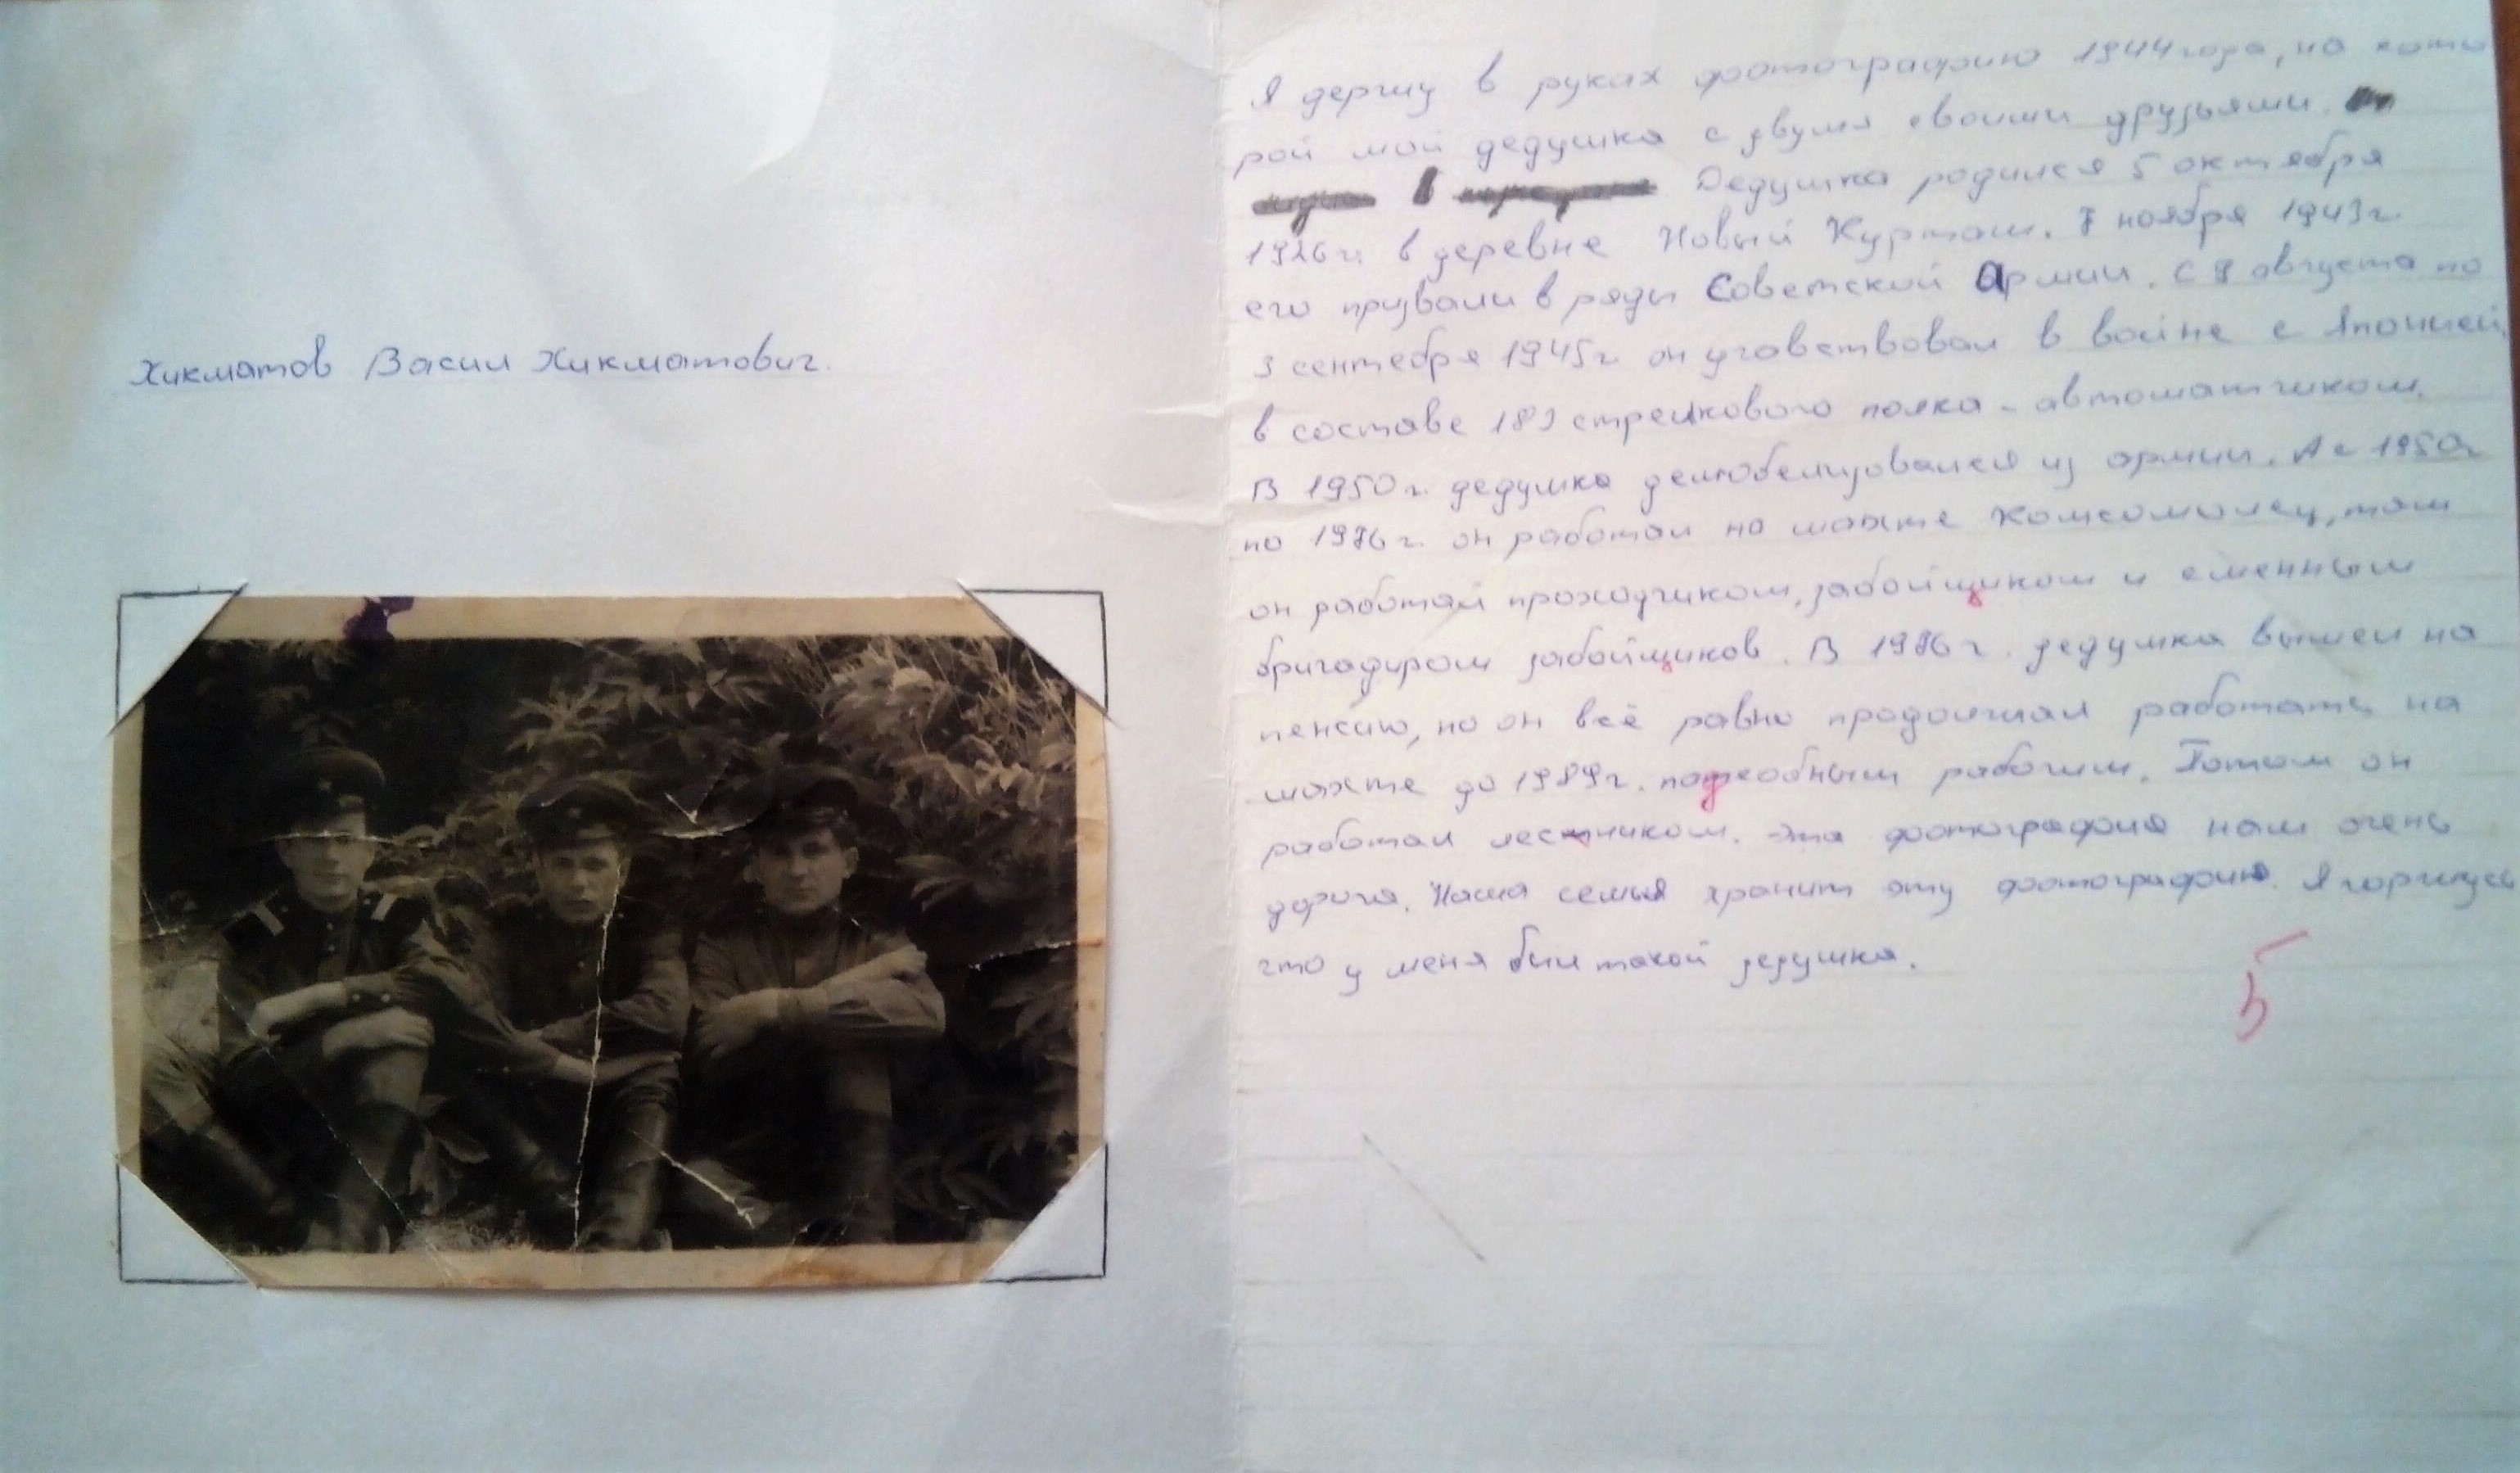 Хикматов Васил Хикматович.
Я держу в руках фотографию 1944 года, на кото
рой мой дедушка с двумя своими друзьями.
в Дедушка родился 5 октября
1926 г. в деревне Новый Курташ. 7 ноября 1943 г.
его призвали в ряды Советской Армии. С 9 августа по
3 сентебря 1945 г он учавствовал в войне с Японией,
в составе 183 стрелкового полка - автоматчиком.
В 1950 г. дедушка демобелизовался из армии. А с 1950г
по 1976 г. он работал на шахте Комсомолец, там
он работал проходчиком, забойщиком и сменным
бригадиром забойщиков. В 1976 г. дедушка вышел на
пенсию, но он всё равно продолжал работать на
шахте до 1989 г. подсобным рабочим. Потом он
работал лесником. Эта фотография нам очень
дорога. Наша семья хранит эту фотографию. Я горжусь
что у меня был такой дедушка.
5